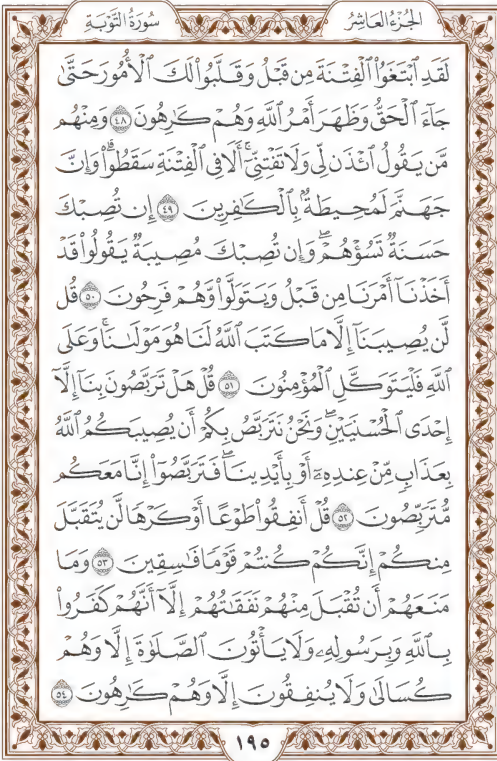 الجُزْءُ العَاشِرُ
سُورَةُ التَّوْبَةِ
لَقَدِ ٱبْتَغَوُاْ ٱلْفِتْنَةَ مِن قَبْلُ وَقَلَّبُواْ لَكَ ٱلْأُمُورَ حَتَّىٰ
جَآءَ ٱلْحَقُّ وَظَهَرَ أَمْرُ ٱللَّهِ وَهُمْ كَٰرِهُونَ ٤٨ وَمِنْهُم
مَّن يَقُولُ ٱئْذَن لِّي وَلَا تَفْتِنِّيٓۚ أَلَا فِي ٱلْفِتْنَةِ سَقَطُواْۗ وَإِنَّ
جَهَنَّمَ لَمُحِيطَةُۢ بِٱلْكَٰفِرِينَ ٤٩ إِن تُصِبْكَ
حَسَنَةٌ تَسُؤْهُمْۖ وَإِن تُصِبْكَ مُصِيبَةٌ يَقُولُواْ قَدْ
أَخَذْنَآ أَمْرَنَا مِن قَبْلُ وَيَتَوَلَّواْ وَّهُمْ فَرِحُونَ ٥٠ قُل
لَّن يُصِيبَنَآ إِلَّا مَا كَتَبَ ٱللَّهُ لَنَا هُوَ مَوْلَىٰنَاۚ وَعَلَى
ٱللَّهِ فَلْيَتَوَكَّلِ ٱلْمُؤْمِنُونَ ٥١ قُلْ هَلْ تَرَبَّصُونَ بِنَآ إِلَّآ
إِحْدَى ٱلْحُسْنَيَيْنِۖ وَنَحْنُ نَتَرَبَّصُ بِكُمْ أَن يُصِيبَكُمُ ٱللَّهُ
بِعَذَابٍ مِّنْ عِندِهِۦٓ أَوْ بِأَيْدِينَاۖ فَتَرَبَّصُوٓاْ إِنَّا مَعَكُم
مُّتَرَبِّصُونَ ٥٢ قُلْ أَنفِقُواْ طَوْعًا أَوْ كَرْهًا لَّن يُتَقَبَّلَ
مِنكُمْ إِنَّكُمْ كُنتُمْ قَوْمًا فَٰسِقِينَ ٥٣ وَمَا
مَنَعَهُمْ أَن تُقْبَلَ مِنْهُمْ نَفَقَٰتُهُمْ إِلَّآ أَنَّهُمْ كَفَرُواْ
بِٱللَّهِ وَبِرَسُولِهِۦ وَلَا يَأْتُونَ ٱلصَّلَوٰةَ إِلَّا وَهُمْ
كُسَالَىٰ وَلَا يُنفِقُونَ إِلَّا وَهُمْ كَٰرِهُونَ ٥٤
١٩٥